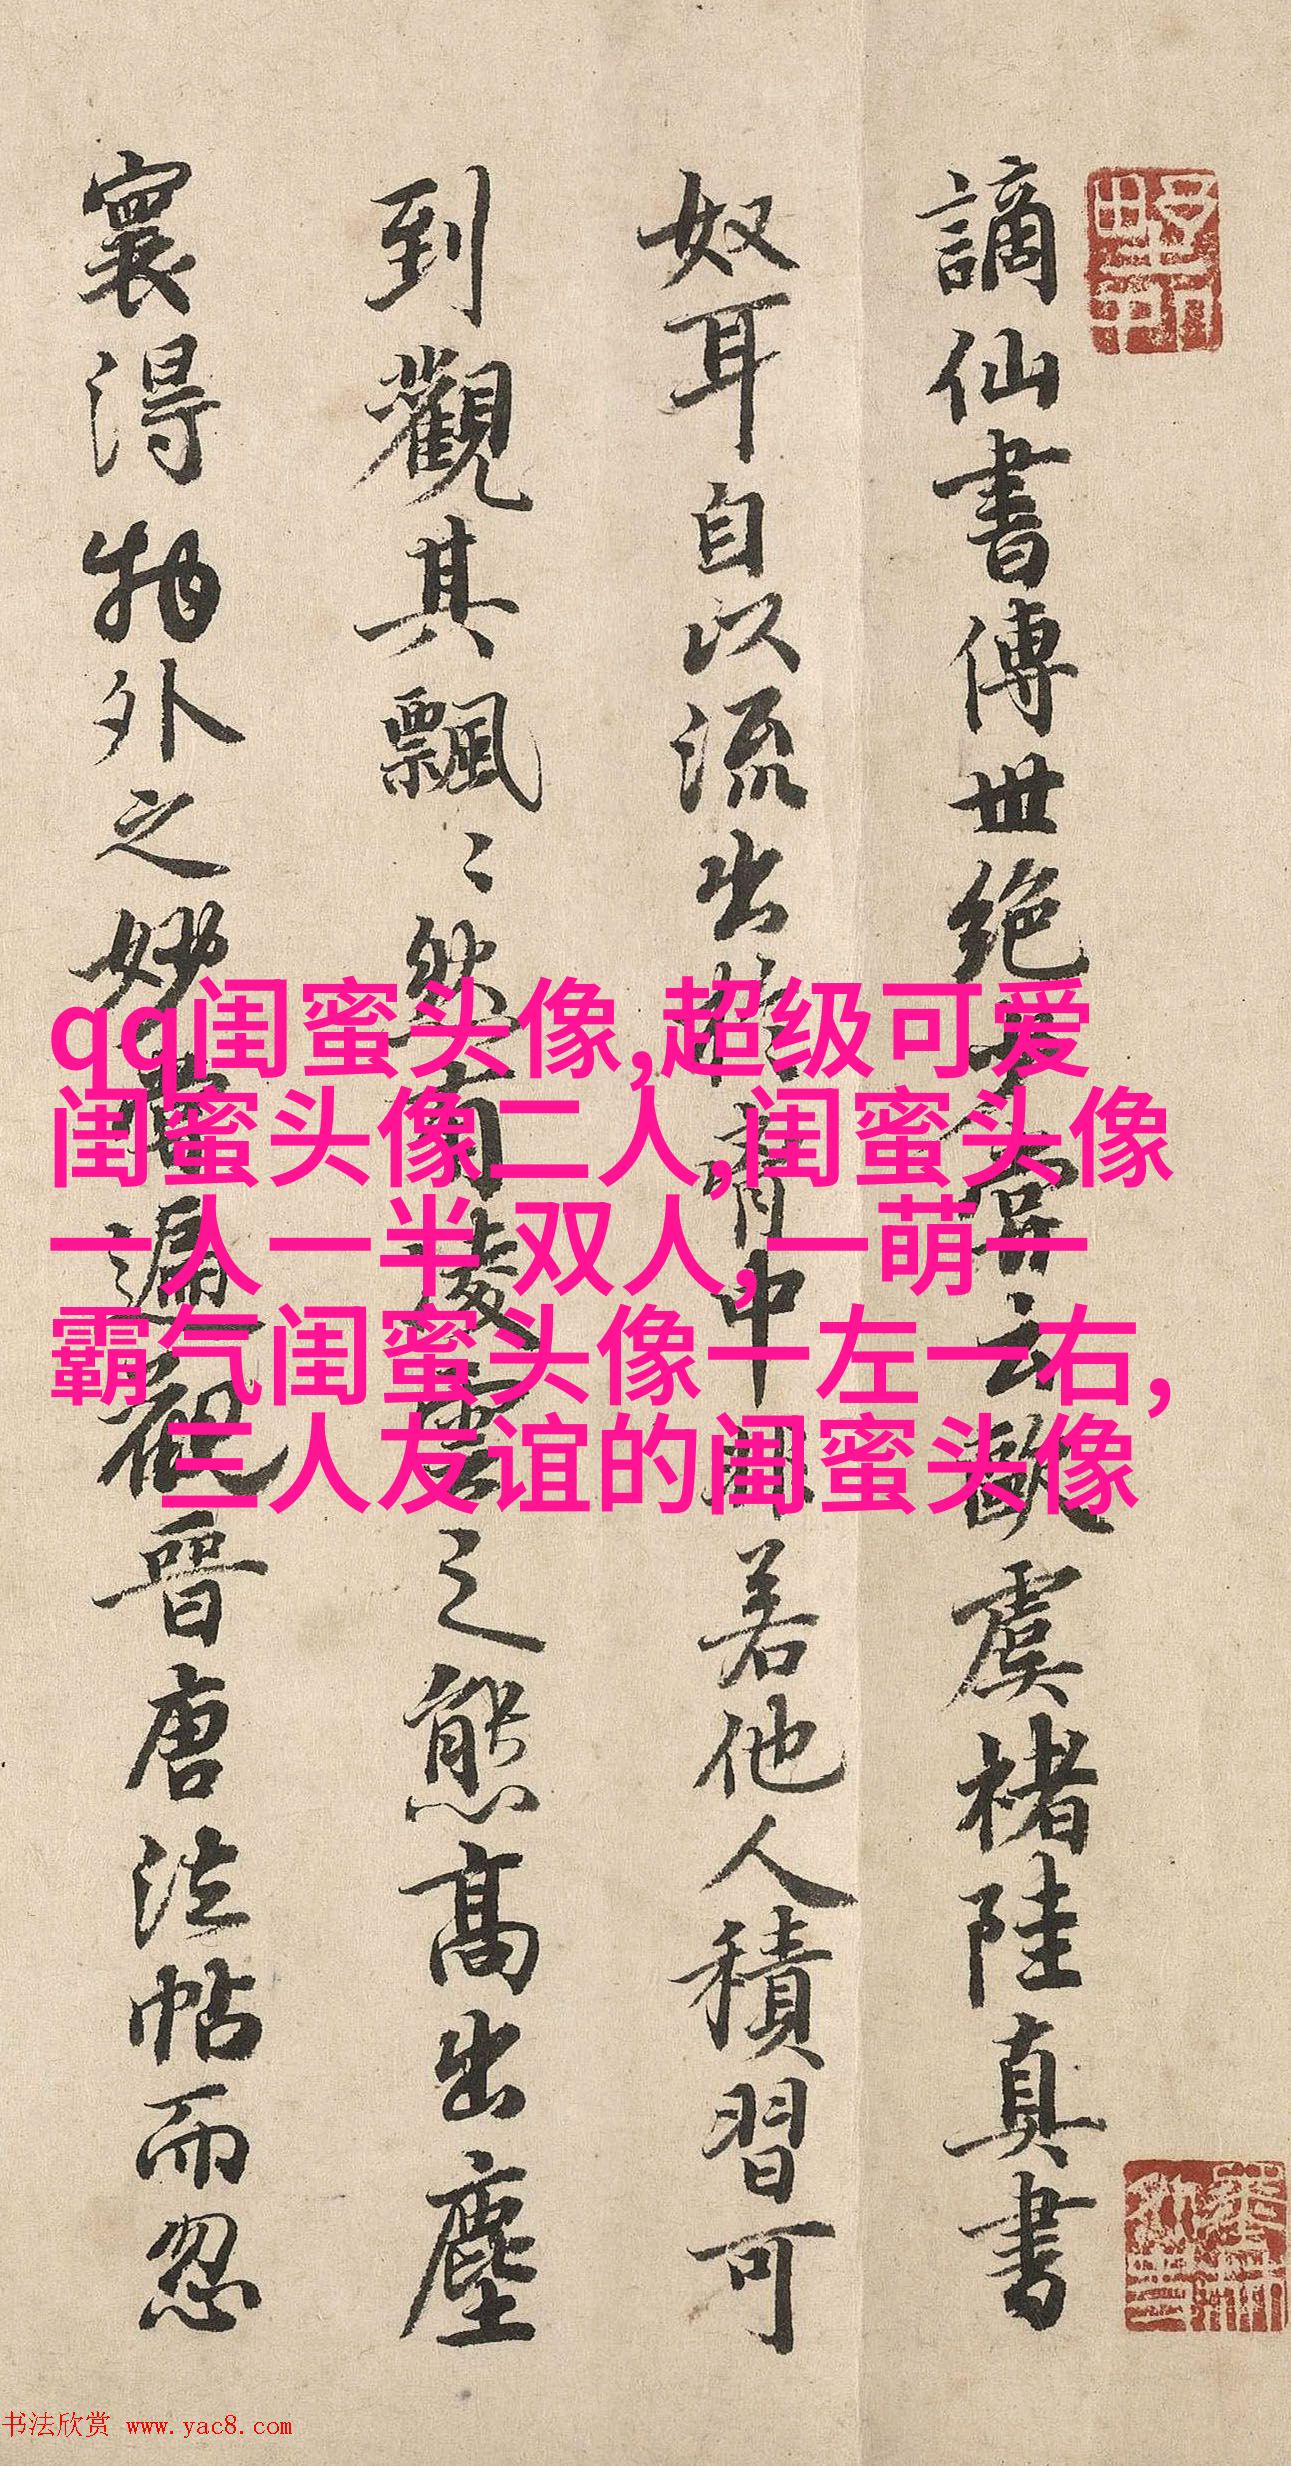 謫仙書傳世絕少嘗云歐虞褚陸真書
奴耳自以流出於胷中非若他人積習可
到觀其飄〻然有凌雲之態高出塵
寰得物外之妙嘗遍觀晉唐法帖而忽
qq闺蜜头像,超级可爱
闺蜜头像二人,闺蜜头像
一人一半 双人,一萌一
霸气闺蜜头像一左一右,
三人友谊的闺蜜头像
书法欣赏 www.yac8.com